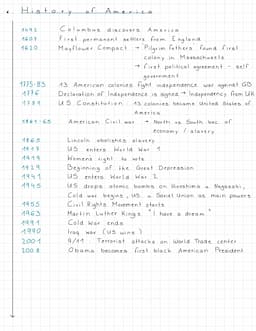 History of America
1492 Columbus discovers America
1607 First permanent settlers from England
1620 Mayflower Compact → Pilgrim fathers found first
colony in Massachusetts
→ first political agreement - self
government
1775-83 13 American colonies fight independence war against GB
1776 Declaration of Independence is signed → Independency from UK
U.S. Constitution: 13 colonies become United States of
America
1861-65 American Civil war → North vs South bec. of
economy / slavery
1865 Lincoln abolishes slavery
1917 US enters World War 1
1919 Womens right to vote
1929 Beginning of the Great Depression
1941 US enters World War 2
1945 US drops atomic bombs on Hiroshima & Nagasaki,
Cold war begins, US & Soviet Union as main powers
1955 Civil Rights Movement starts
1963 Martin Luther Kings "I have a dream"
1991 Cold war ends
1990 Iraq war (US wins)
2001 9/11: Terrorist attacks on World Trade center
2008 Obama becomes first black American President